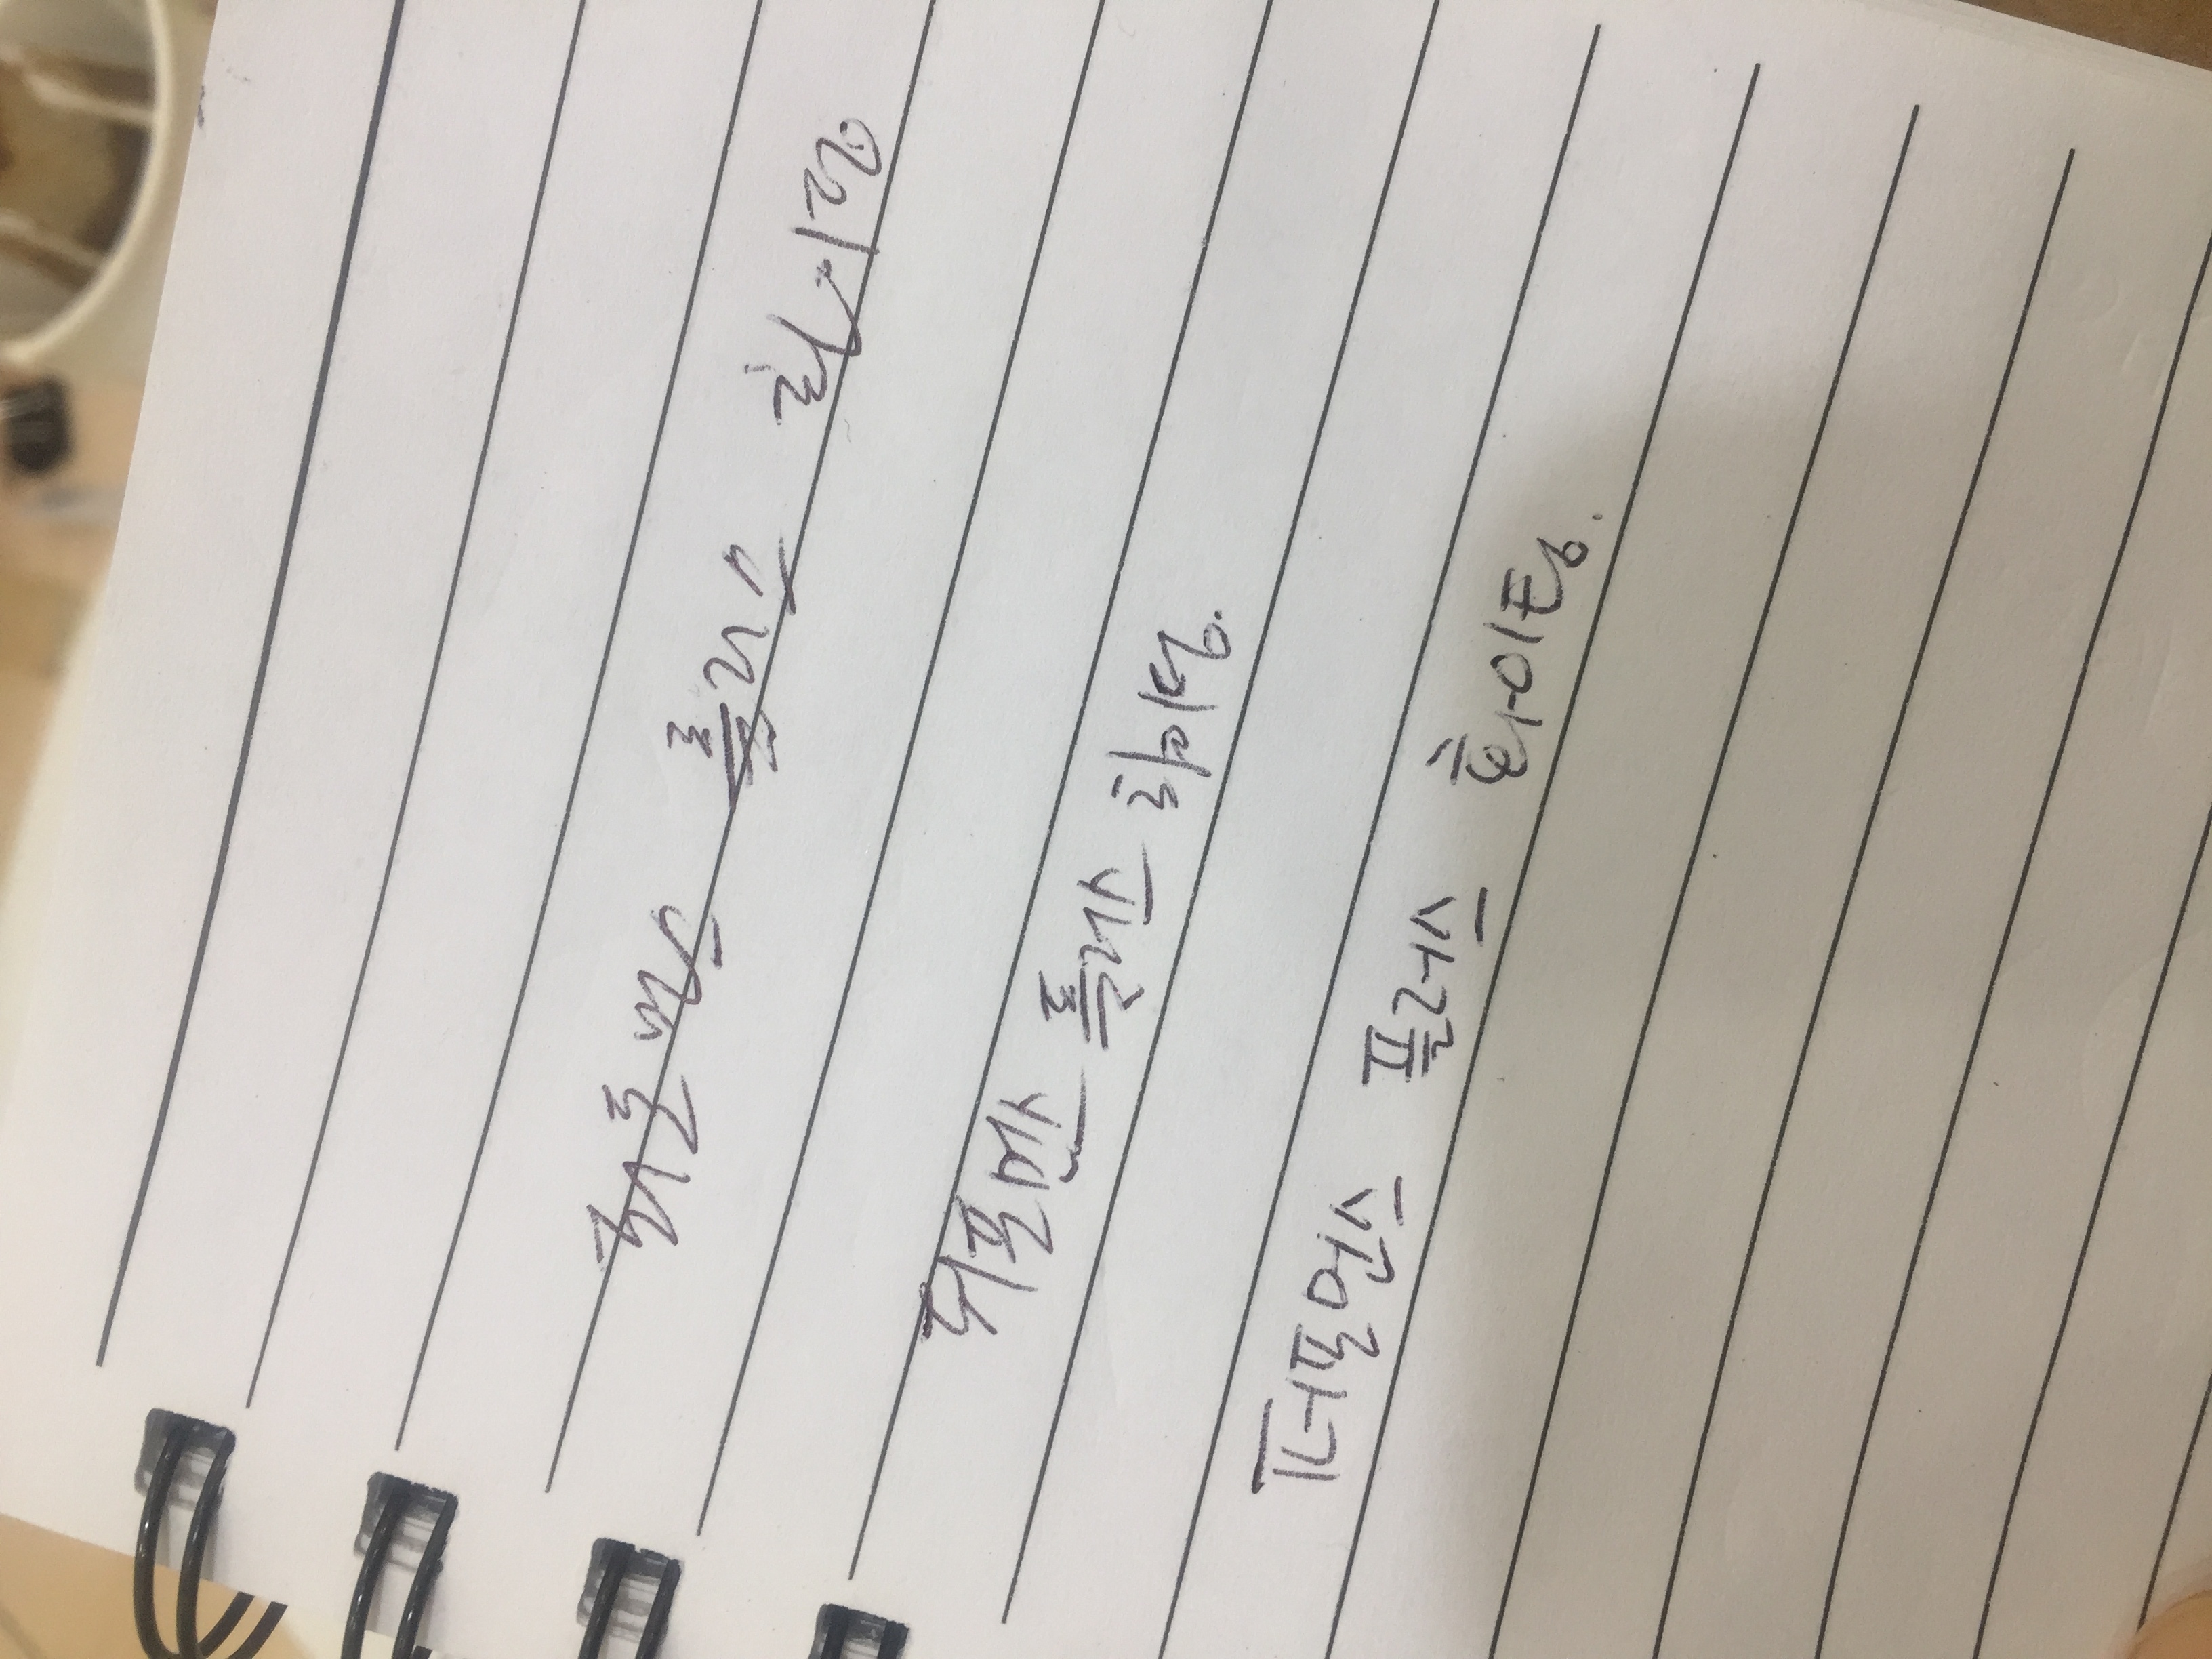 퍼포먼스 플러스 화이팅
퍼포먼스 플러스 화이팅.
퍼포먼스 플러스 화이팅.